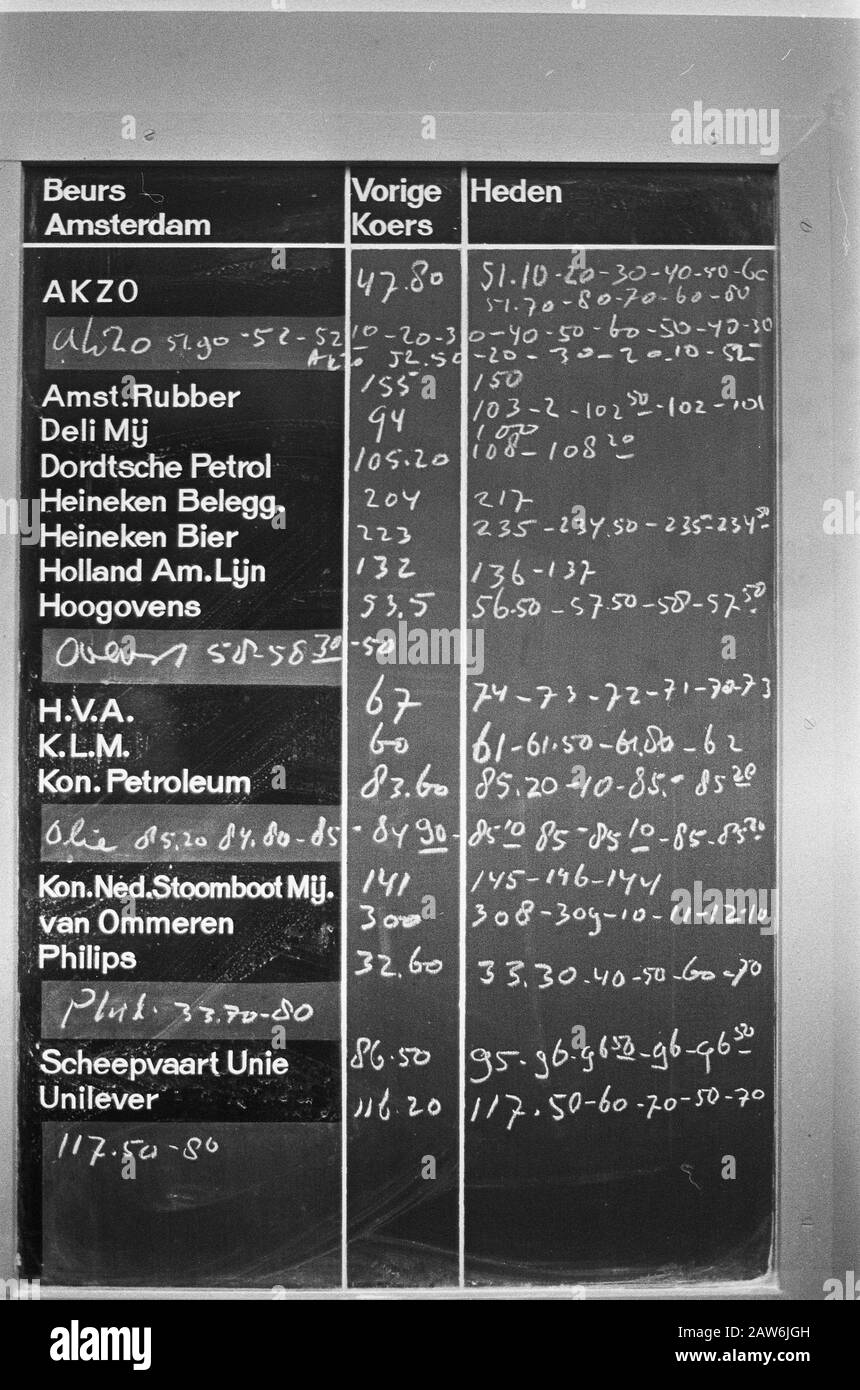 Beurs Amsterdam Vorige Koers Heden
AKZO 47.80 51.10-20-30-40-50-60
51.70-80-70-60-80
Akzo 51.90-52-52 10-20-30-40-50-60-50-40-30
Akzo 52.50-20-30-20.10-52
Amst.Rubber 155 150
Deli Mij 94 103-2-102 50-102-101
Dordtsche Petrol 105.20 108-108 20
Heineken Belegg. 204 217
Heineken Bier 223 235-234.50-235-234 50
Holland Am.Lijn 132 136-137
Hoogovens 53.5 56.50-57.50-58-57 50
58-58 30-50
H.V.A. 67 74-73-72-71-70-73
K.L.M. 60 61-61.50-61.80-62
Kon. Petroleum 83.60 85.20-40-85.-85 20
Olie 85.20 84.80-85-84 90-85 10 85-85 10-85-85 20
Kon.Ned.Stoomboot Mij. 141 145-146-144
van Ommeren 300 308-309-10-11-12-10
Philips 32.60 33.30-40-50-60-70
Phil. 33.70-80
Scheepvaart Unie 86.50 95-96-96 50-96-96 50
Unilever 116.20 117.50-60-70-50-70
117.50-80
alamy
Image ID: 2AW6JGH
www.alamy.com